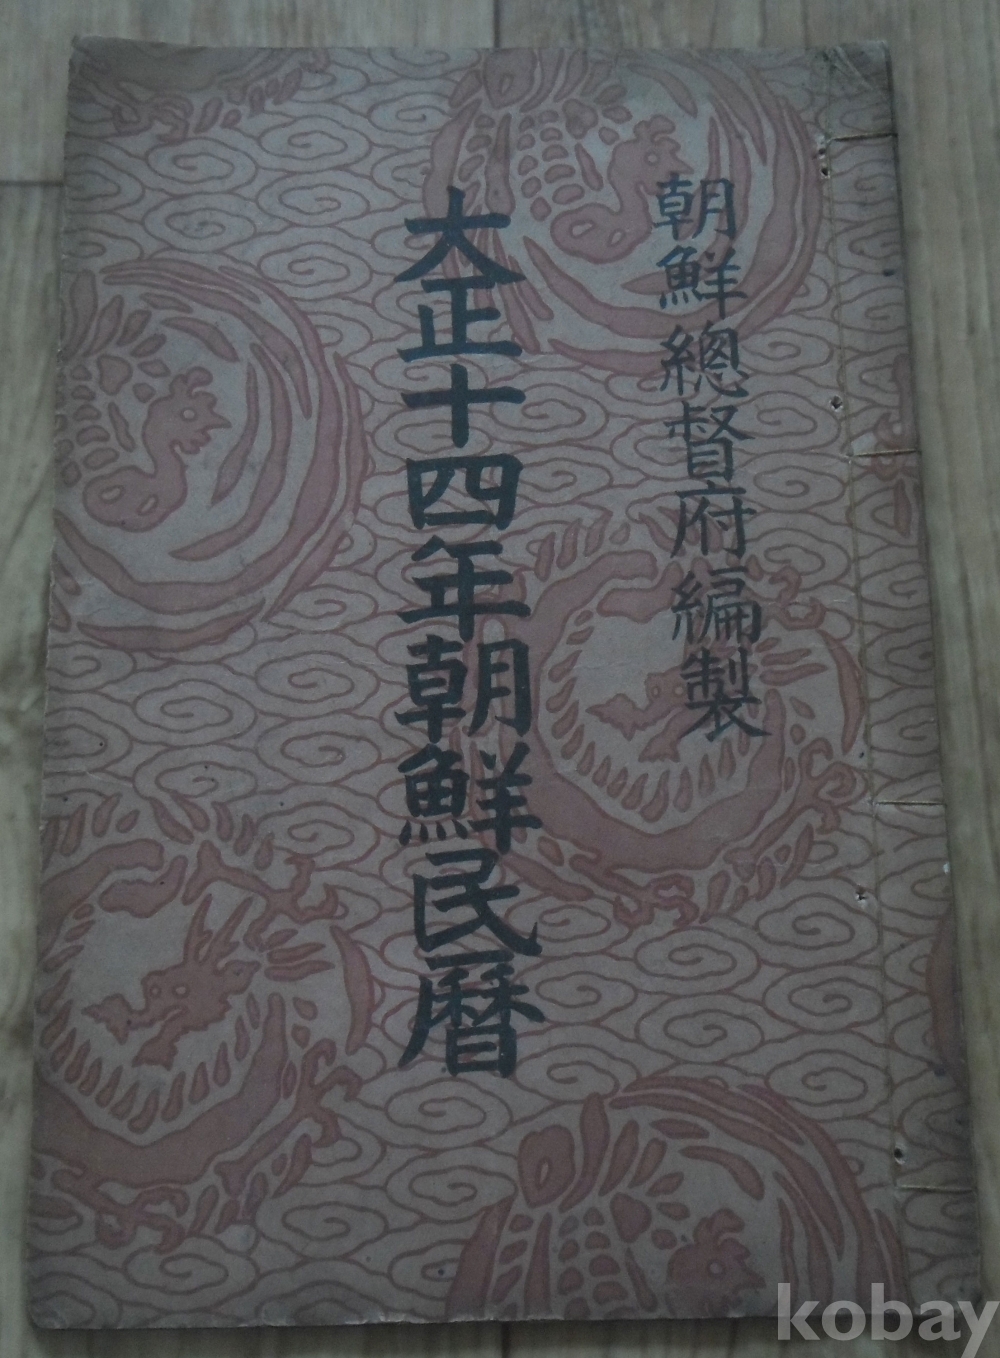 朝鮮總督府編製
大正十四年朝鮮民曆
kobay